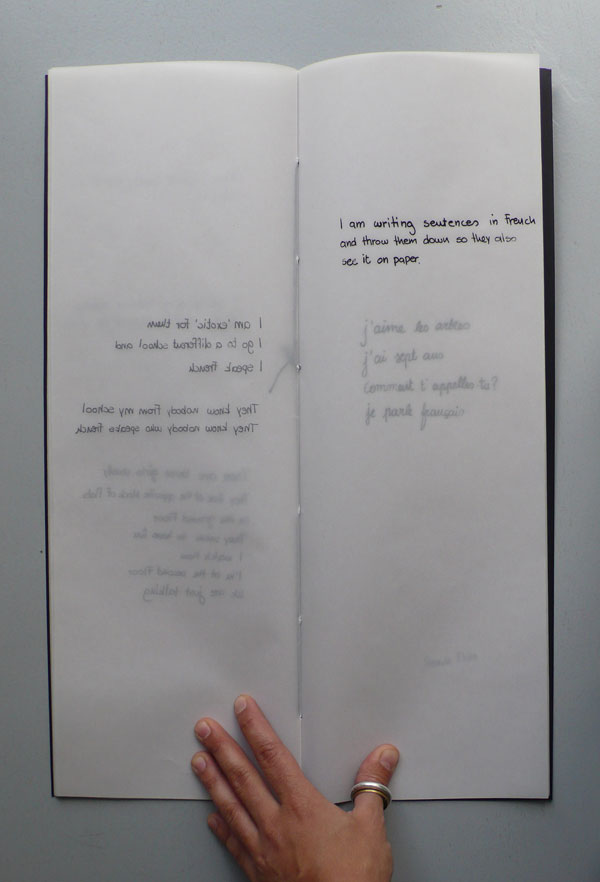 I am 'exotic' for them
I go to a different school and
I speak french
They know nobody from my school
They know nobody who speaks french
There are three girls
They live at the opposite block of flats
in the ground floor
They seem to have fun
I watch them
I'm at the second floor
We are just talking
I am writing sentences in French
and throw them down so they also
see it on paper.
j'aime les arbres
j'ai sept ans
comment t'appelles-tu?
je parle français